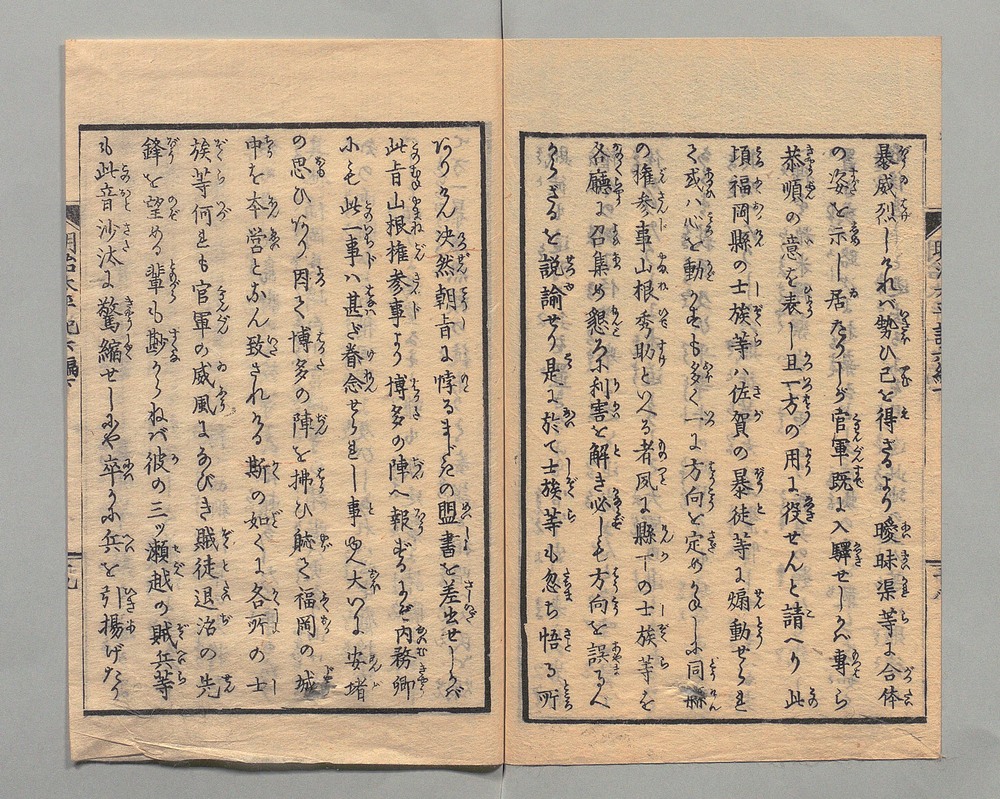 暴威烈しけれバ勢ひ已を得ざるより曖昧渠等に合体
の姿を示し居たりしが官軍既に入驛せしかバ專ら
恭順の意を表し且一方の用に役せんと請へり此
頃福岡縣の士族等ハ佐賀の暴徒等に煽動せられ
て或ハ心を動かすも多く一に方向を定めかねしに同縣
の権参事山根秀助といへる者夙に縣下の士族等を
各廳に召集め懇ろに利害を解き必しも方向を誤るべ
からざるを説諭せり是に於て士族等も忽ち悟る所
ありけん决然朝旨に悖るまじきの盟書を差出せしかバ
此旨山根権参事より博多の陣へ報ずるにぞ内務卿
にも此一事ハ甚だ眷念せられし事ゆゑ大いに安堵
の思ひあり因て博多の陣を拂ひ躰て福岡の城
中を本営となん致されける斯の如くに各所の士
族等何れも官軍の威風になびき賊徒退治の先
鋒を望める輩も尠からねバ彼の三ッ瀬越の賊兵等
も此音沙汰に驚縮せしにや卒かに兵を引揚げたり
明治太平記六編下